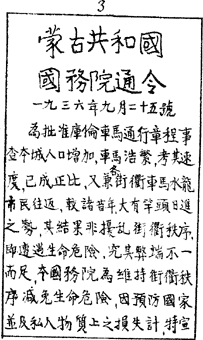 3
蒙古共和國
國務院通令
一九三六年九月二十五號
為批准庫倫車馬通行章程事
查本城人口增加,車馬浩繁,考其速
度,已成正比,又兼各街衢車馬水龍
市民往返,較諸昔年大有竿頭日進
之勢,其結果非擾乱街衢秩序,
即遭遇生命危險、究其弊端不一
而足,本國務院為維持街衢秩
序减免生命危險,因預防國家
並及私人物質上之損失計,特宣